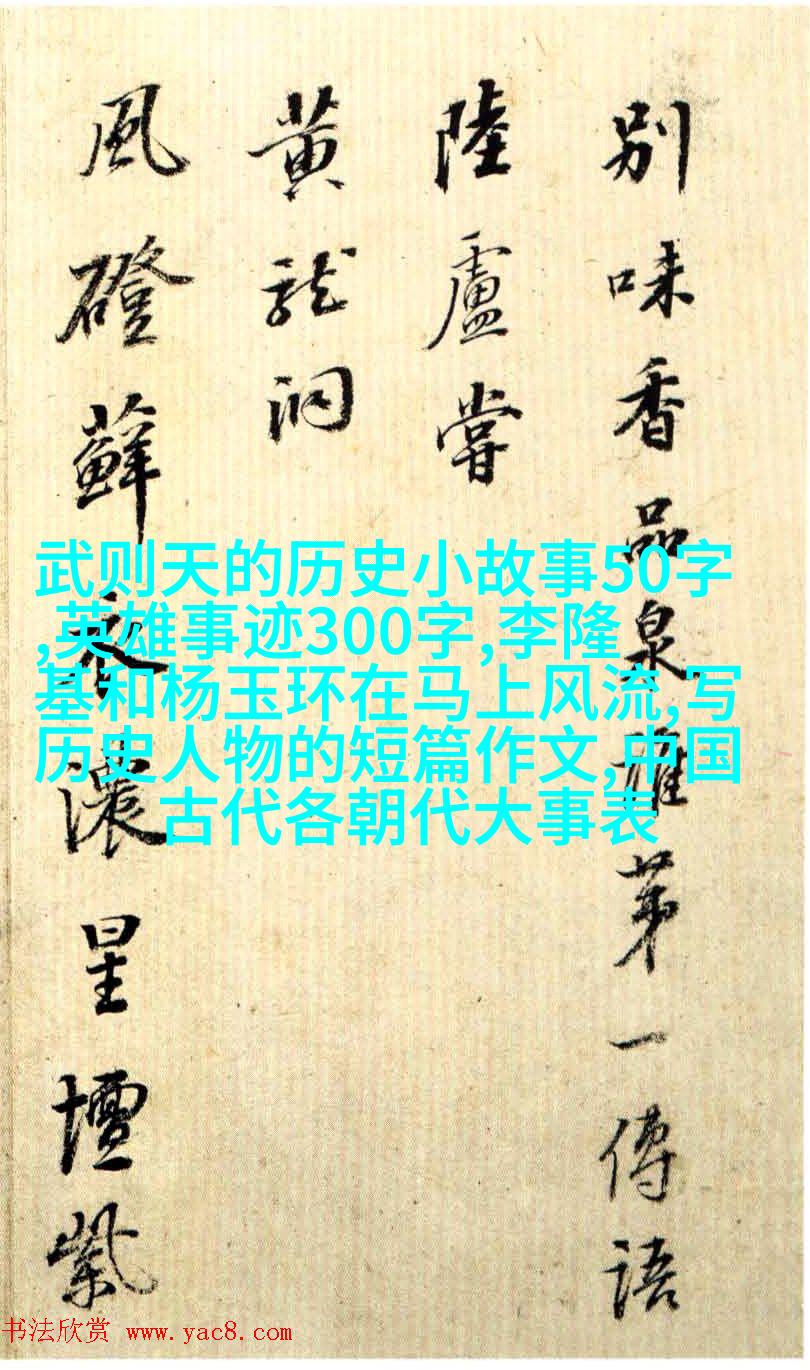 别味香品泉雄苐一傳語
陸盧嘗
黄龍洞
風磴蘚衣濃星壇紫
武则天的历史小故事50字
,英雄事迹300字,李隆
基和杨玉环在马上风流,写
历史人物的短篇作文,中国
古代各朝代大事表
书法欣赏 www.yac8.com